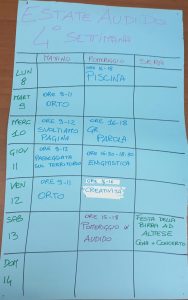 ESTATE AUDIDO
4° SETTIMANA
MATTINO POMERIGGIO SERA
LUN
8
ORE 16-18
PISCINA
MART
9
ORE 9-11
ORTO
MERC
10
ORE 9-12
SVOLTIAMO
PAGINA
ORE 16-18
GR
PAROLA
GIOV
11
ORE 9-12
PASSEGGIATA
SUL TERRITORIO
ORE 16:30-18:30
ENIGMISTICA
VEN
12
ORE 9-11
ORTO
CREATIVITÀ
SAB
13
ORE 15-18
POMERIGGIO IN
AUDIDO
FESTA DELLA
BIRRA AD
ALTESE
CENA + CONCERTO
DOM
14